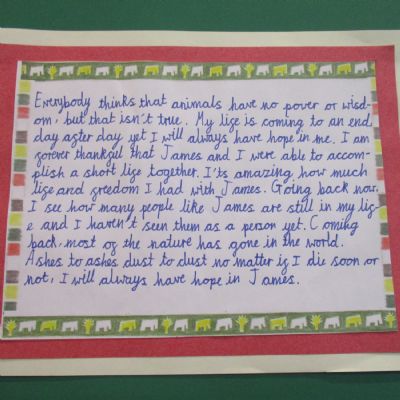 Everybody thinks that animals have no power or wisd-
om, but that isn't true. My life is coming to an end,
day after day yet I will always have hope in me. I am
forever thankful that James and I were able to accom-
plish a short life together. I'ts amazing how much
life and freedom I had with James. Going back now,
I see how many people like James are still in my lif-
e and I haven't seen them as a person yet. Coming
back, most of the nature has gone in the world.
Ashes to ashes dust to dust no matter if I die soon or
not, I will always have hope in James.